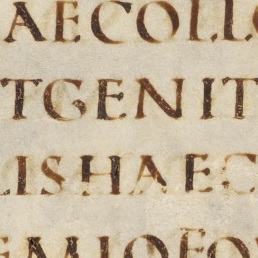 AECOLLO
TGENIT
LISHAEC